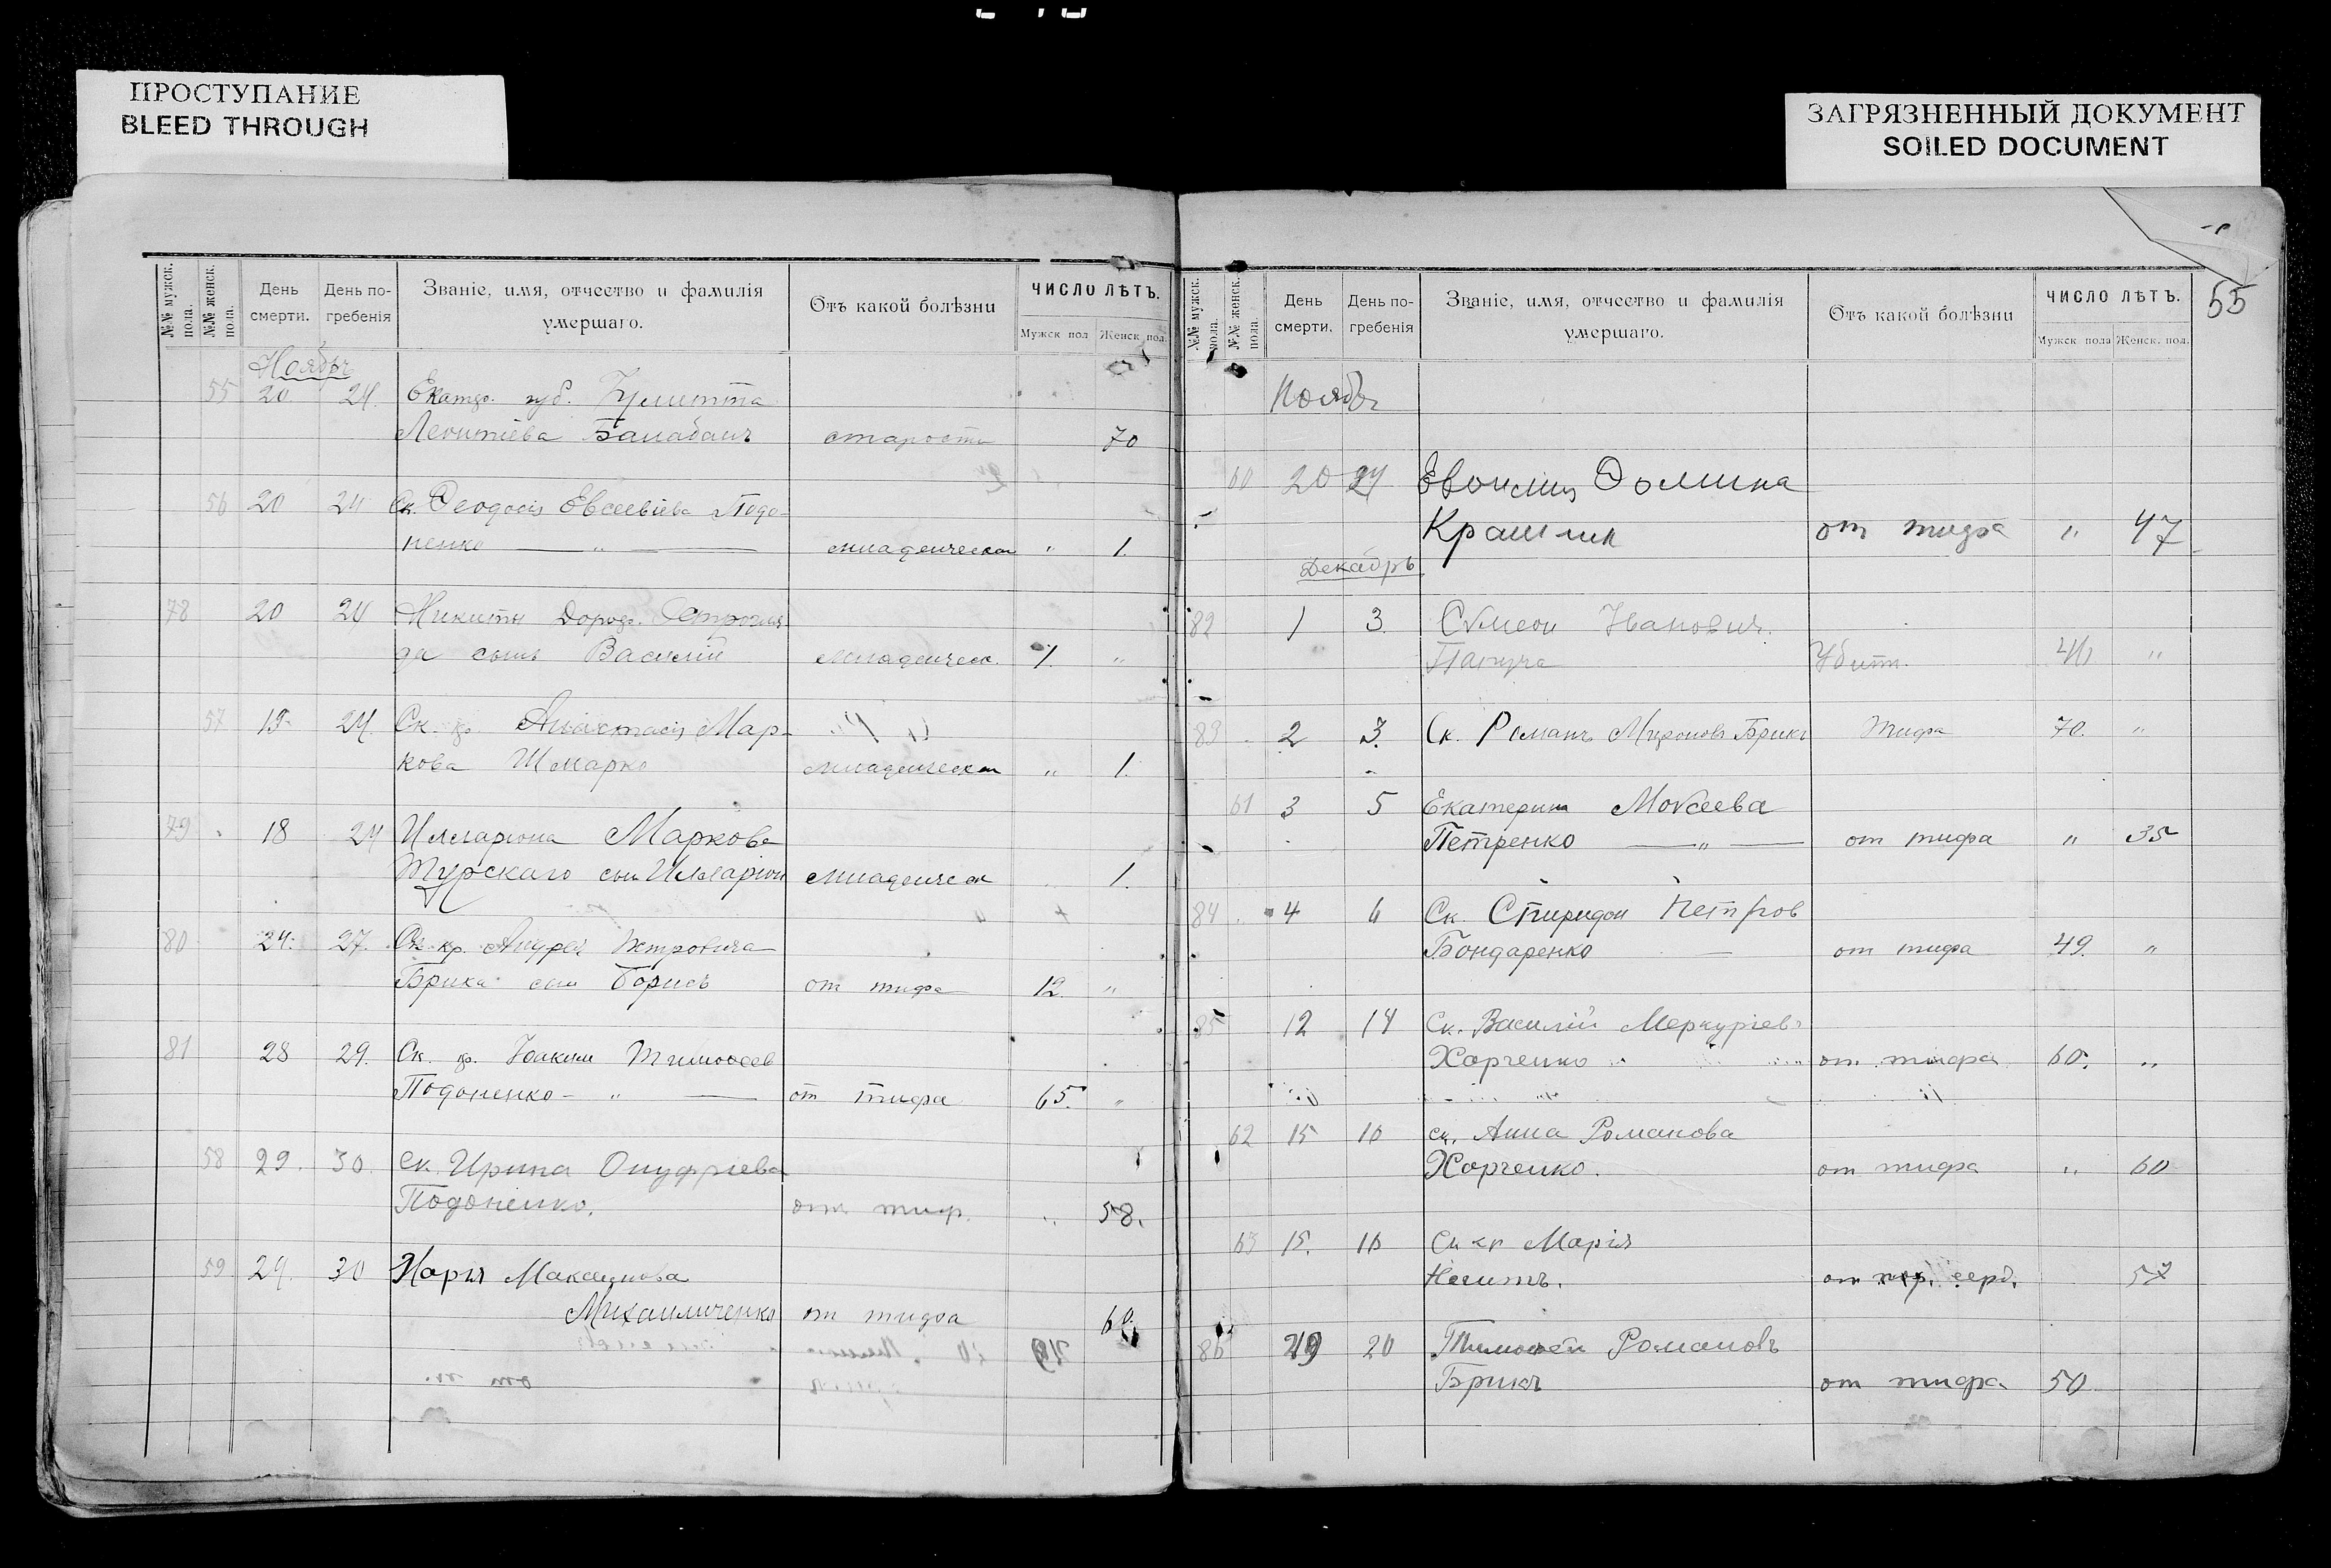 ПРОСТУПАНИЕ
BLEED THROUGH
ЗАГРЯЗНЕННЫЙ ДОКУМЕНТ
SOILED DOCUMENT
№№ мужск. пола.
№№ женск. пола.
День смерти.
День по-
гребенія
Званіе, имя, отчество и фамилія
умершаго.
Отъ какой болѣзни
ЧИСЛО ЛѢТЪ.
Мужск пол Женск. пол.
Ноябрь
55 20 24. Екатр. губ.
Леонтіева Балабанъ старости 70
56 20 24 Ск. Ѳеодосія Евсеевіева Подо-
ненко — „ — младенческая „ 1.
78 20 24 Никиты Дороф.
да сынъ Василій младенческ. 1. „
57 15 24. Ск. кр. Анастасія Мар-
кова Шмарко младенческая „ 1.
79 18 24 Илларіона Маркова
Турскаго сын Илларіон младенческ 1.
80 24. 27. Ск. кр. Андрея Петровича
Брика сын Борисъ от тифа 12. „
81 28 29. Ск. кр. Іоаким Тимоѳеев
Подоненко - „ — от тифа 65. „
58 29. 30. Ск. Ирина Онуфріева
Подоненко. отъ тиф. „ 58.
59 29. 30 Марія Максимова
Михаиличенко от тифа 60.
№№ мужск. пола.
№№ женск. пола.
День смерти.
День по-
гребенія
Званіе, имя, отчество и фамилія
умершаго.
Отъ какой болѣзни
ЧИСЛО ЛѢТЪ.
Мужск пола Женск. пол.
55
Ноябр
60 20 24 Ѳомина
от тифа „ 47
Декабрь
82 1 3. Сѵмеон Иванович.
Убит. „
83 2 3. Ск. Романъ Миронов Брикъ Тифа 70. „
61 3 5 Екатерина Моѵсеева
Петренко — „ — от тифа „ 35
84 4 6 Ск. Спиридон Петров
Бондаренко — от тифа 49. „
85 12 14 Ск. Василій Меркуріев
Харченко от тифа 60. „
62 15 16 ск. Анна Романова
Харченко. от тифа „ 60
63 15. 16 Ск кр Марія
от пор. серд. 57
86 19 20 Тимоѳей Романовъ
Брикъ от тифа 50